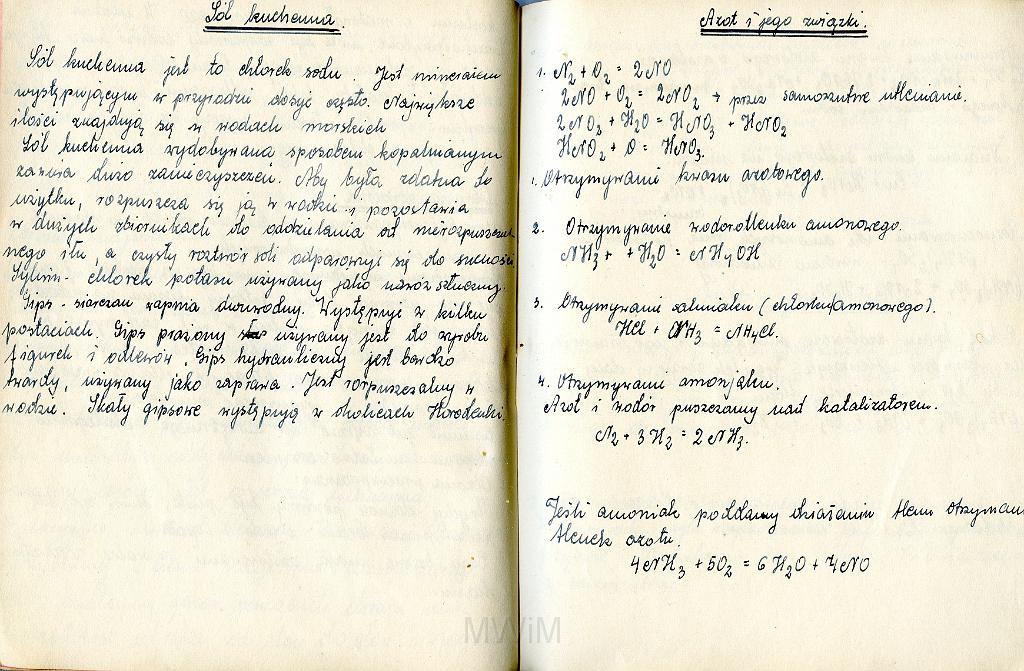 Sól kuchenna.
Sól kuchenna jest to chlorek sodu. Jest minerałem
występującym w przyrodzie dosyć często. Największe
ilości znajdują się w wodach morskich
Sól kuchenna wydobywana sposobem kopalnianym
zawiera dużo zanieczyszczeń. Aby była zdatna do
użytku, rozpuszcza się ją w wodzie i pozostawia
w dużych zbiornikach do oddzielania od nierozpuszczal
nego iłu, a czysty roztwór soli odparowuje się do suchości.
Sylwin - chlorek potasu używany jako nawóz sztuczny.
Gips - siarczan wapnia dwuwodny. Występuje w kilku
postaciach. Gips prażony używany jest do wyrobu
figurek i odlewów. Gips hydrauliczny jest bardzo
twardy, używany jako zaprawa. Jest rozpuszczalny w
wodzie. Skały gipsowe występują w okolicach Horodenki.
Azot i jego związki.
1. N₂ + O₂ = 2NO
2NO + O₂ = 2NO₂ → przez samorzutne utlenianie.
2NO₂ + H₂O = HNO₃ + HNO₂
HNO₂ + O = HNO₃.
1. Otrzymywanie kwasu azotowego.
2. Otrzymywanie wodorotlenku amonowego.
NH₃ + H₂O = NH₄OH
3. Otrzymywanie salmiaku (chlorku amonowego).
HCl + NH₃ = NH₄Cl.
4. Otrzymywanie amonjaku.
Azot i wodór puszczamy nad katalizatorem.
N₂ + 3H₂ = 2NH₃.
Jeśli amoniak poddamy działaniu tlenu otrzymamy
tlenek azotu.
4NH₃ + 5O₂ = 6H₂O + 4NO
MWiM